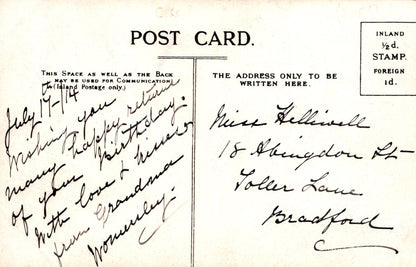 POST CARD.
THIS SPACE AS WELL AS THE BACK
MAY BE USED FOR COMMUNICATION.
(Inland Postage only.)
THE ADDRESS ONLY TO BE
WRITTEN HERE.
INLAND
½d.
STAMP.
FOREIGN
1d.
July 17th/14
Wishing you
many happy returns
of your Birthday.
With love & kisses
from Grandma
Womersley.
Miss Helliwell
18 Abingdon St
Toller Lane
Bradford